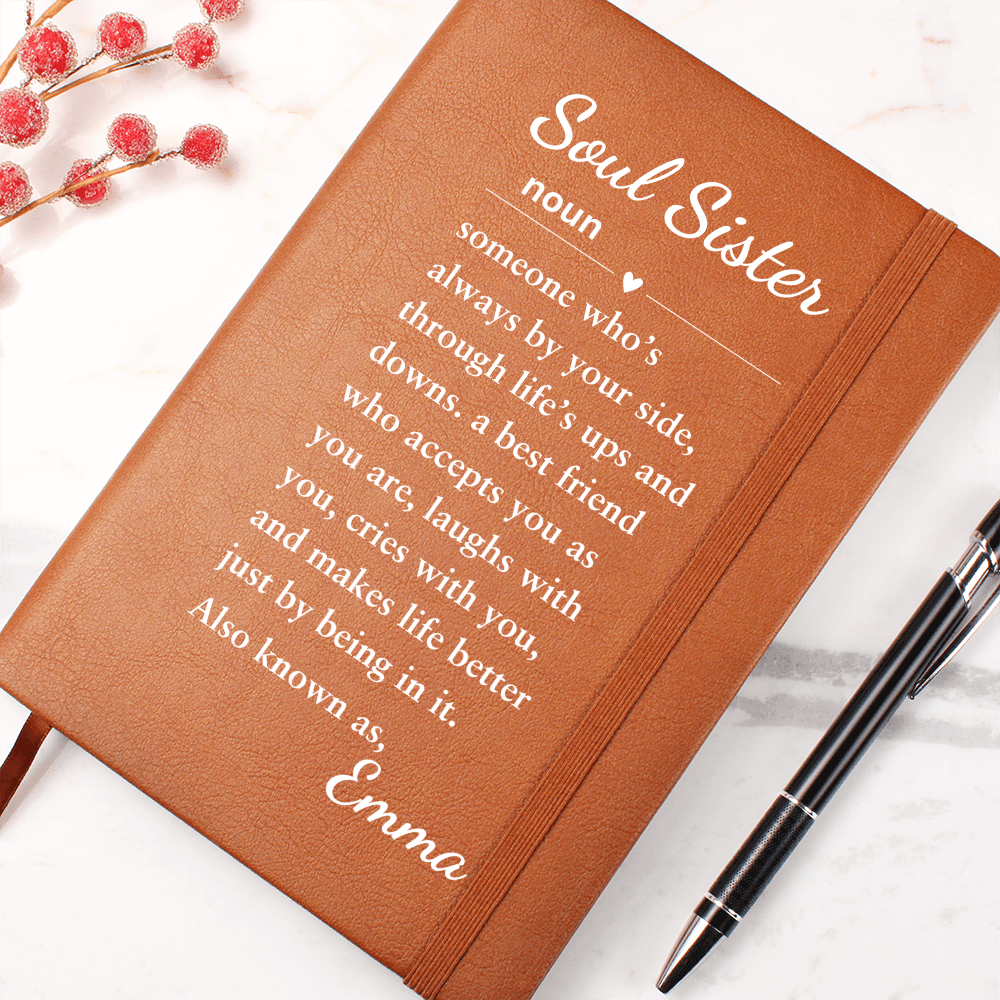 Soul Sister
noun
someone who's
always by your side,
through life's ups and
downs. a best friend
who accepts you as
you are, laughs with
you, cries with you,
and makes life better
just by being in it.
Also known as,
Emma